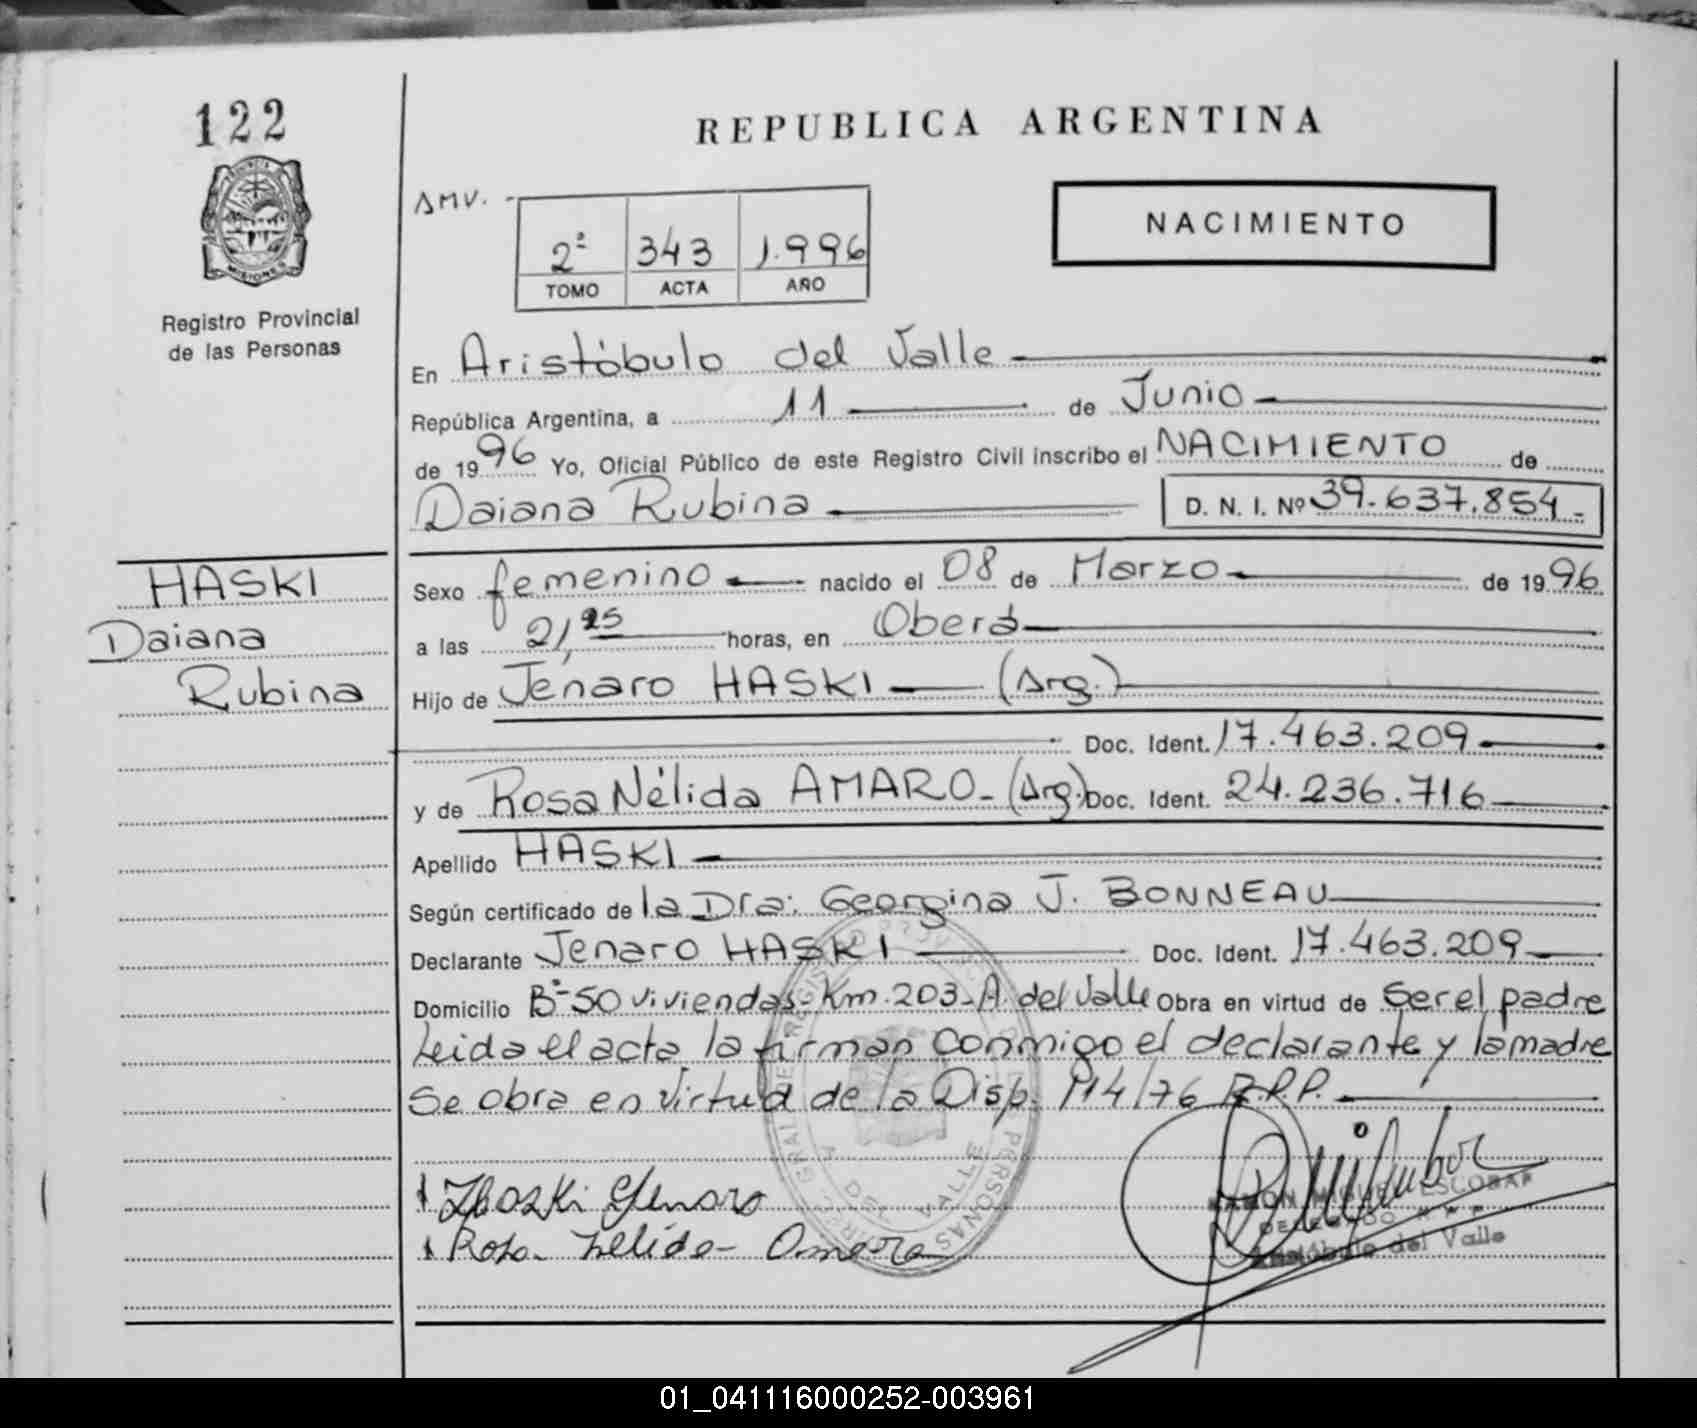 122
REPUBLICA ARGENTINA
AMV.
NACIMIENTO
2ª 343 1.996
TOMO ACTA AÑO
MISIONES
Registro Provincial
de las Personas
En Aristóbulo del Valle
República Argentina, a 11 de Junio
de 1996 Yo, Oficial Público de este Registro Civil inscribo el NACIMIENTO de
Daiana Rubina D. N. I. Nº 39.637.854.-
HASKI
Daiana
Rubina
Sexo femenino nacido el 08 de Marzo de 1996
a las 21,25 horas, en Oberá
Hijo de Jenaro HASKI (Arg.)
Doc. Ident. 17.463.209
y de Rosa Nélida AMARO- (Arg.) Doc. Ident. 24.236.716
Apellido HASKI
Según certificado de la Dra: Georgina J. BONNEAU
Declarante Jenaro HASKI Doc. Ident. 17.463.209
Domicilio Bº 50 viviendas- Km. 203- A. del Valle Obra en virtud de ser el padre
Leida el acta la firman conmigo el declarante y la madre
Se obra en virtud de la Disp. 114/76 R.P.P.
Haski Jenaro
Rosa Nelida Amaro
RAMON MIGUEL ESCOBAR
DELEGADO R P P
Aristóbulo del Valle
PERSONAS
DEL VALLE
01_041116000252-003961